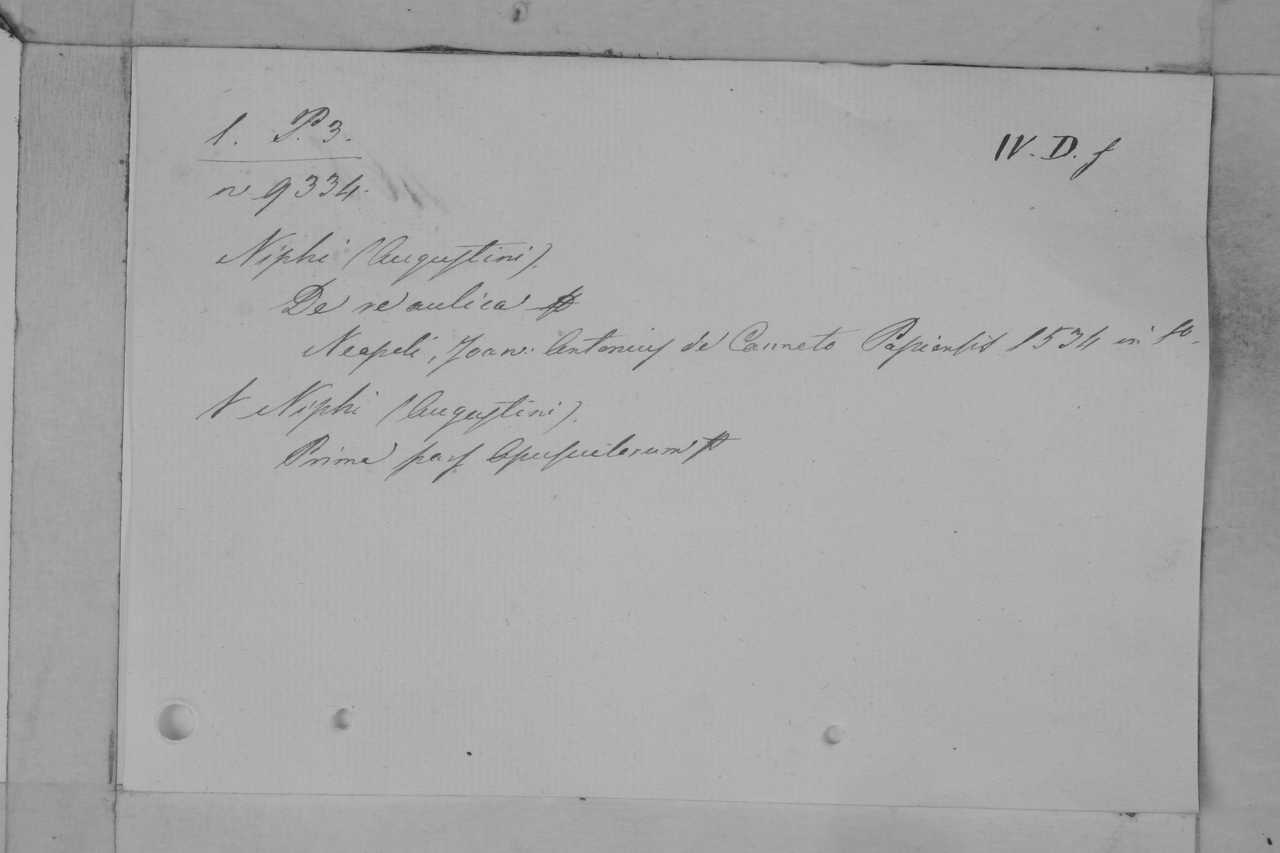 1. P. 3.
IV. D. f
n 9334.
Niphi (Augustini).
De re aulica
Neapoli, Joan: Antonius de Canneto Papiensis 1534 in fo.
V Niphi (Augustini).
Prima pars Opusculorum